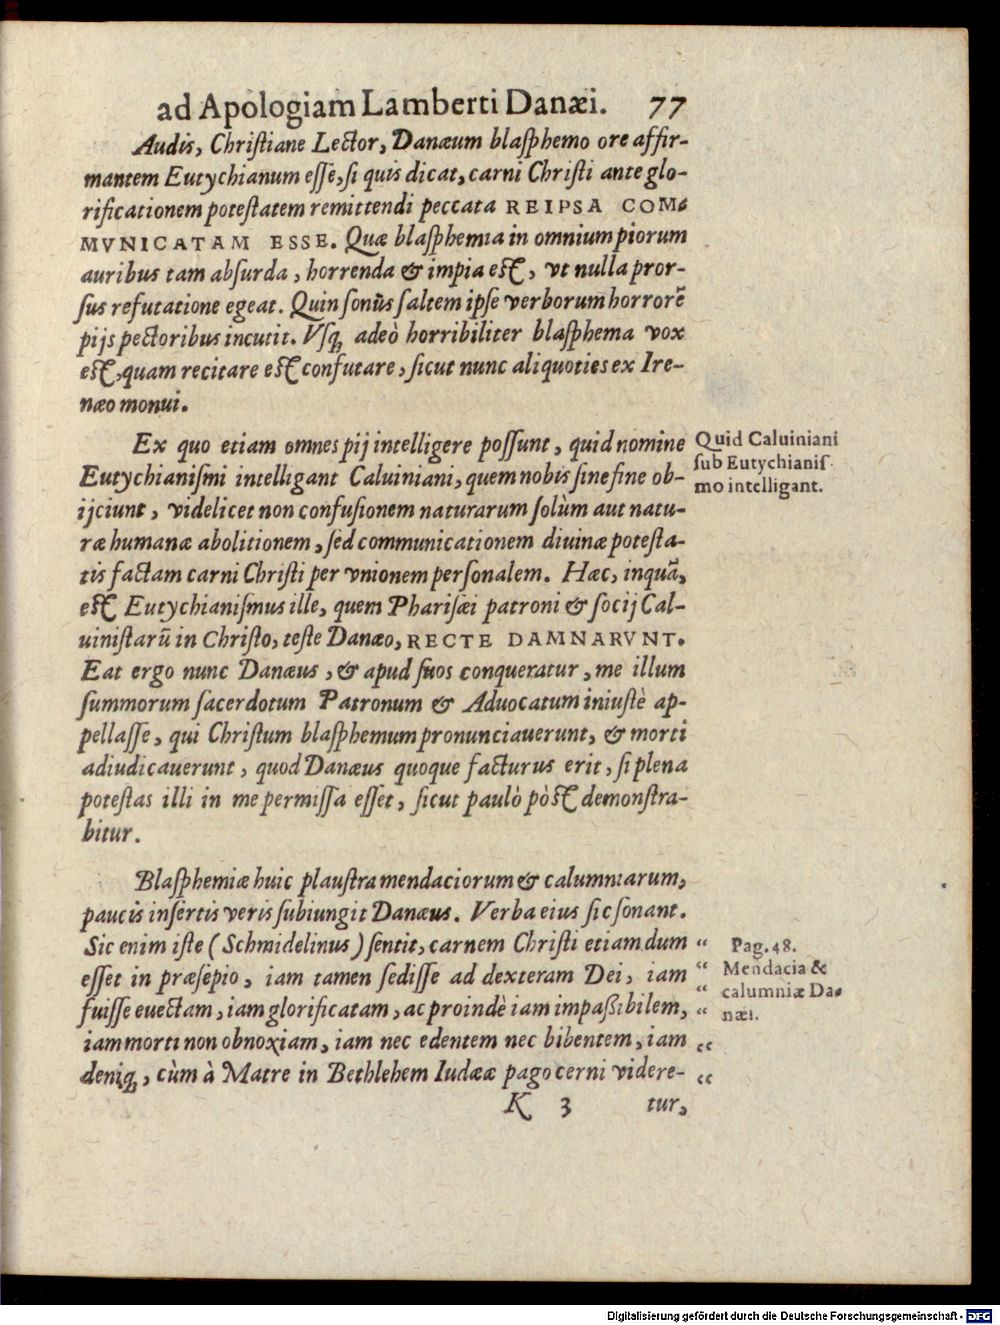 ad Apologiam Lamberti Danæi. 77
Audis, Chriſtiane Lector, Danæum blaſphemo ore affir-
mantem Eutychianum eſſe, ſi quis dicat, carni Chriſti ante glo-
rificationem poteſtatem remittendi peccata REIPSA COM-
MVNICATAM ESSE. Quæ blaſphemia in omnium piorum
auribus tam abſurda, horrenda & impia eſt, vt nulla pror-
ſus refutatione egeat. Quin ſonũs ſaltem ipſe verborum horrorẽ
pijs pectoribus incutit. Vſq; adeò horribiliter blaſphema vox
eſt, quam recitare eſt confutare, ſicut nunc aliquoties ex Ire-
næo monui.
Ex quo etiam omnes pij intelligere poſſunt, quid nomine
Eutychianiſmi intelligant Caluiniani, quem nobis ſine fine ob-
ijciunt, videlicet non confuſionem naturarum ſolùm aut natu-
ræ humanæ abolitionem, ſed communicationem diuinæ poteſta-
tis factam carni Chriſti per vnionem perſonalem. Hæc, inquã,
eſt Eutychianiſmus ille, quem Phariſæi patroni & ſocij Cal-
uiniſtarũ in Chriſto, teſte Danæo, RECTE DAMNARVNT.
Eat ergo nunc Danæus, & apud ſuos conqueratur, me illum
ſummorum ſacerdotum Patronum & Aduocatum iniuſtè ap-
pellaſſe, qui Chriſtum blaſphemum pronunciauerunt, & morti
adiudicauerunt, quod Danæus quoque facturus erit, ſi plena
poteſtas illi in me permiſſa eſſet, ſicut paulò pòſt demonſtra-
bitur.
Quid Caluiniani
ſub Eutychianiſ-
mo intelligant.
Blaſphemiæ huic plauſtra mendaciorum & calumniarum,
paucis inſertis veris ſubiungit Danæus. Verba eius ſic ſonant.
Sic enim iſte (Schmidelinus) ſentit, carnem Chriſti etiam dum “
eſſet in præſepio, iam tamen ſediſſe ad dexteram Dei, iam “
fuiſſe euectam, iam glorificatam, ac proindè iam impaßibilem, “
iam morti non obnoxiam, iam nec edentem nec bibentem, iam “
deniq;, cùm à Matre in Bethlehem Iudææ pago cerni videre- “
Pag. 48.
Mendacia &
calumniæ Da-
næi.
K 3 tur,
Digitalisierung gefördert durch die Deutsche Forschungsgemeinschaft - DFG